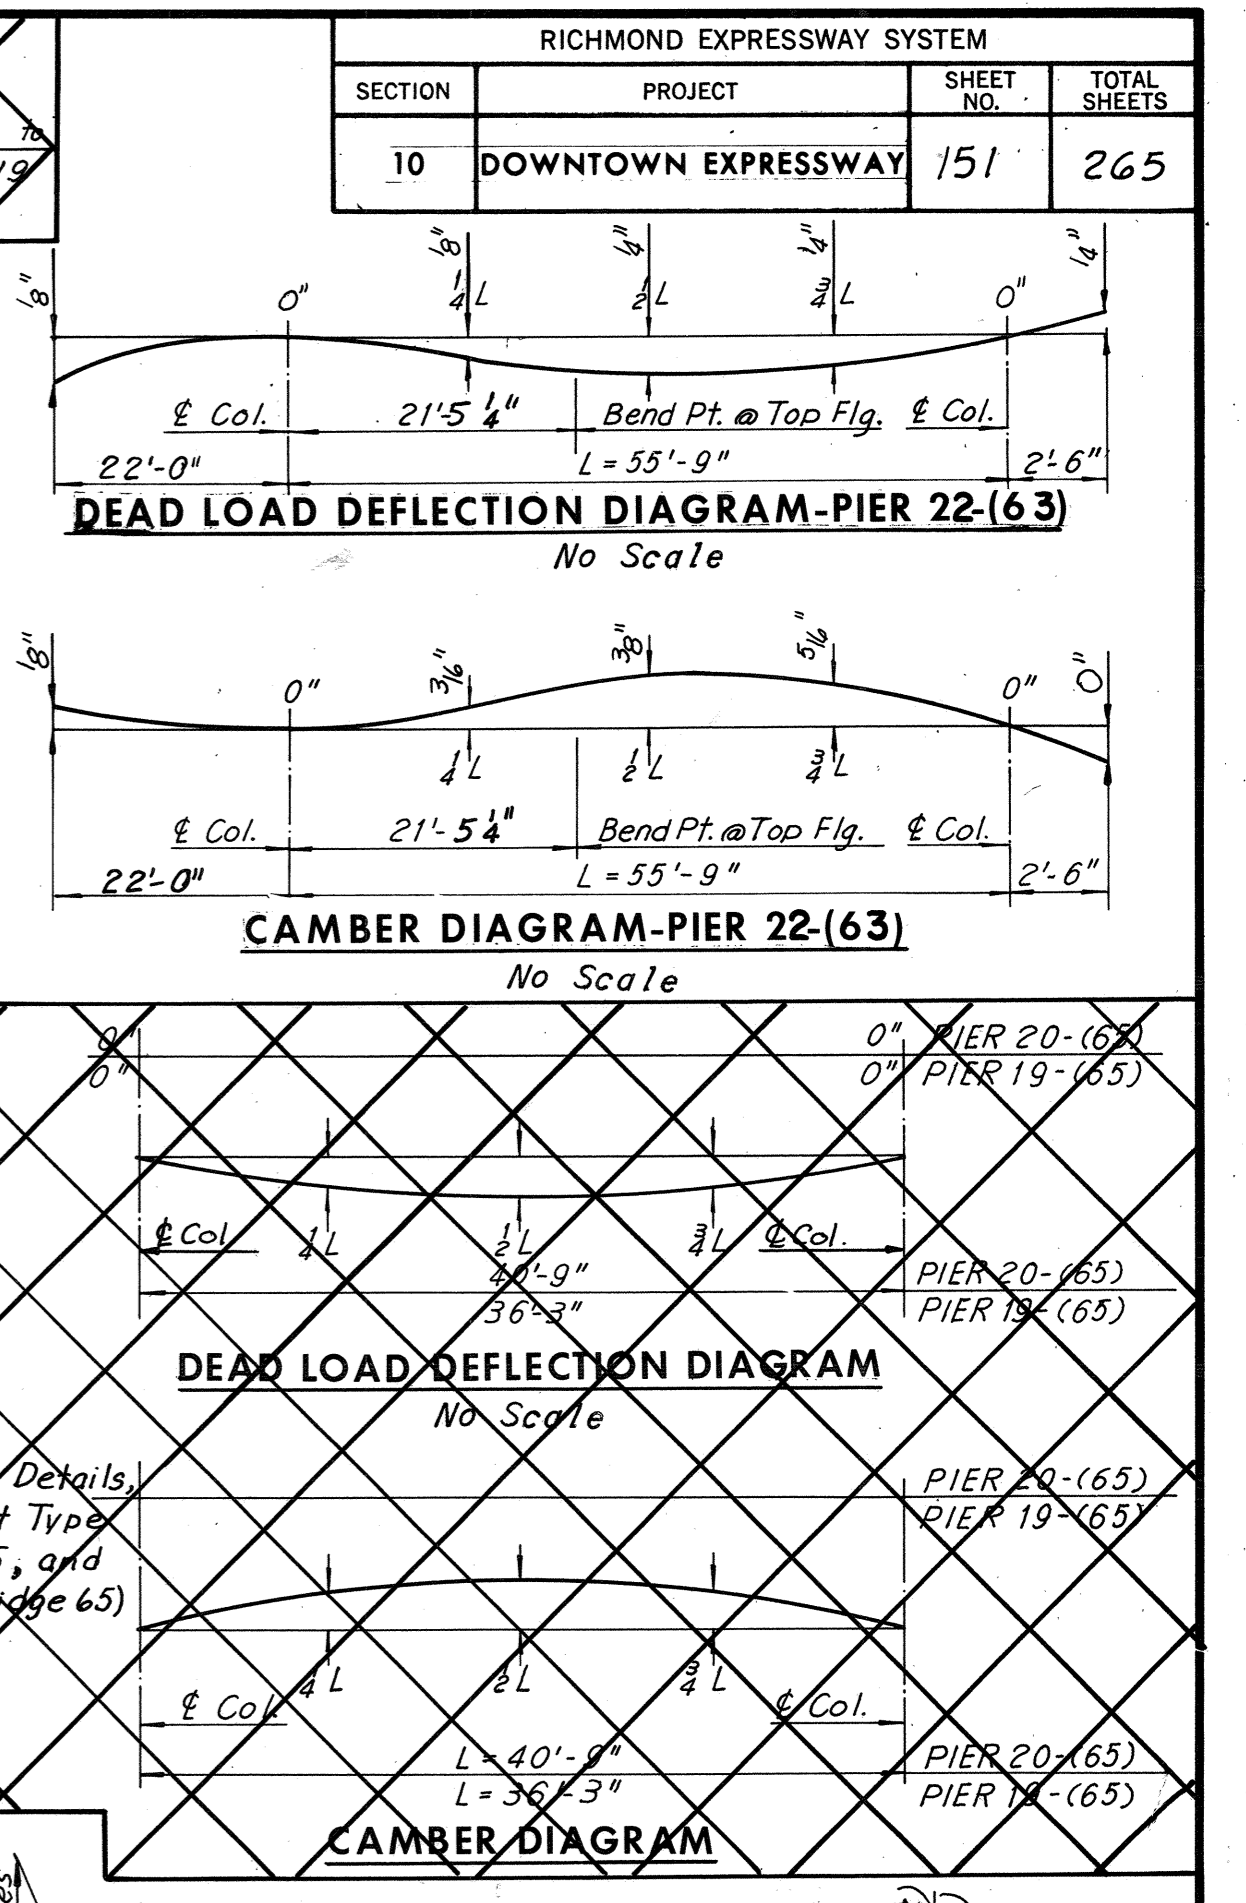 RICHMOND EXPRESSWAY SYSTEM
SECTION PROJECT SHEET NO. TOTAL SHEETS
10 DOWNTOWN EXPRESSWAY 151 265
to
19
1/8" 0" 1/8" 1/4" 1/4" 0" 1/4"
1/4 L 1/2 L 3/4 L
℄ Col. 21'-5 1/4" Bend Pt. @ Top Flg. ℄ Col.
22'-0" L = 55'-9" 2'-6"
DEAD LOAD DEFLECTION DIAGRAM-PIER 22-(63)
No Scale
1/8" 0" 3/16" 3/8" 5/16" 0" 0"
1/4 L 1/2 L 3/4 L
℄ Col. 21'-5 1/4" Bend Pt. @ Top Flg. ℄ Col.
22'-0" L = 55'-9" 2'-6"
CAMBER DIAGRAM-PIER 22-(63)
No Scale
0" 0" PIER 20-(65)
0" 0" PIER 19-(65)
℄ Col 1/4 L 1/2 L 3/4 L ℄ Col.
40'-9" PIER 20-(65)
36'-3" PIER 19-(65)
DEAD LOAD DEFLECTION DIAGRAM
No Scale
Details, PIER 20-(65)
Type PIER 19-(65)
, and
dge 65)
1/4 L 1/2 L 3/4 L
℄ Col. ℄ Col.
L = 40'-9" PIER 20-(65)
L = 36'-3" PIER 19-(65)
CAMBER DIAGRAM